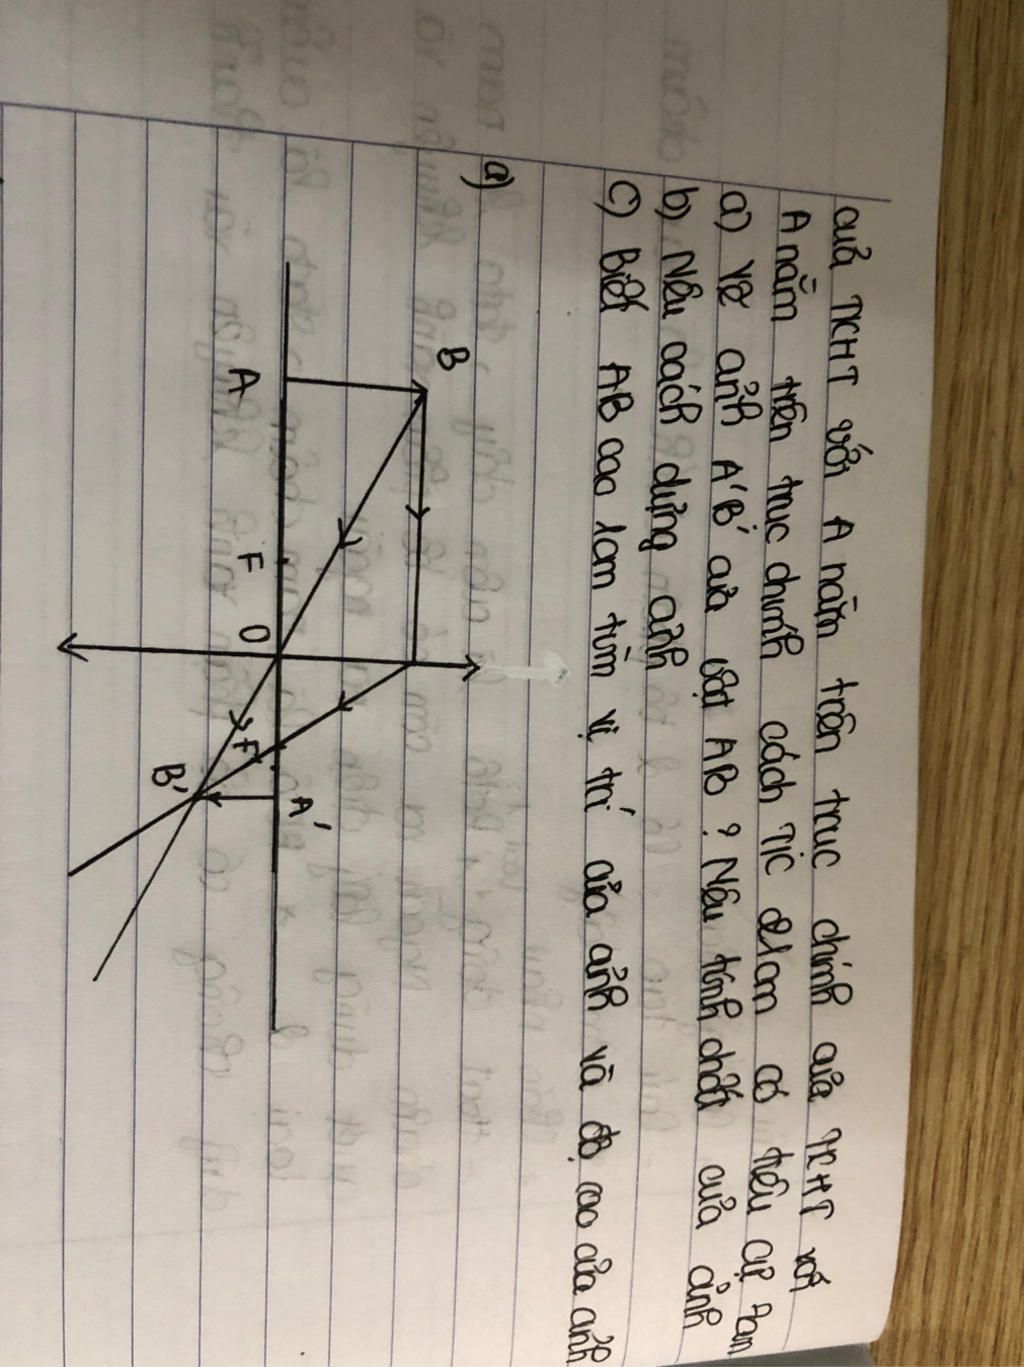 của TKHT với A nằm trên trục chính của TKHT với
A nằm trên trục chính cách TK cm có tiêu cự cm
a) Vẽ ảnh A'B' của vật AB ? Nêu tính chất của ảnh
b) Nêu cách dựng ảnh
c) Biết AB cao 1cm tìm vị trí của ảnh và độ cao của ảnh
a)
B
A
F
O
F'
A'
B'